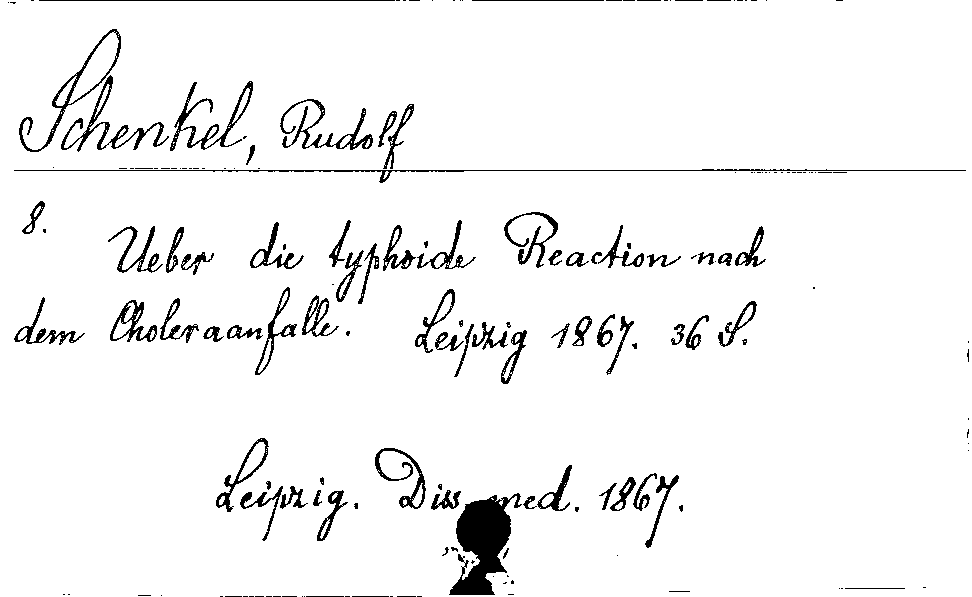 Schenkel, Rudolf
8. Ueber die typhoide Reaction nach
dem Choleraanfalle. Leipzig 1867. 36 S.
Leipzig. Diss. med. 1867.